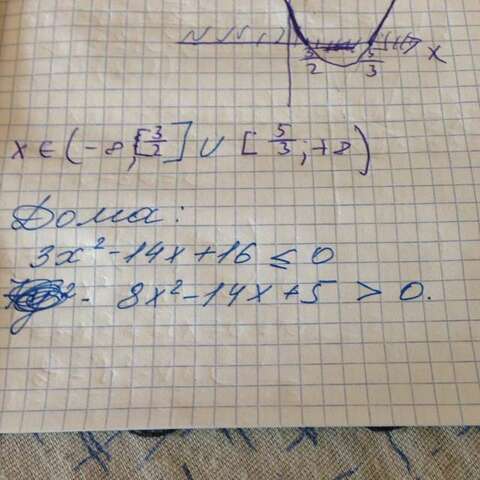 3/2 5/3 x
x ∈ (-8, [3/2] ∪ [5/3; +8)
Дома:
3x² - 14x + 16 ≤ 0
8x² - 14x + 5 > 0.